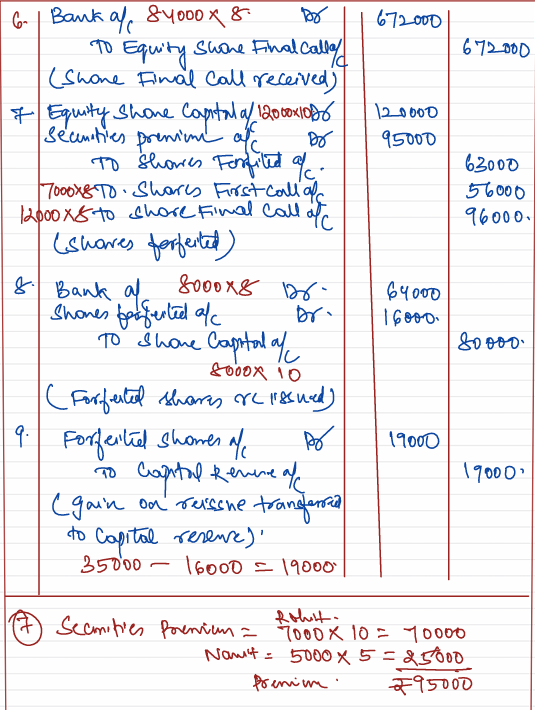 6. Bank a/c 84000 x 8 Dr 672000
To Equity Share Final Call a/c 672000
(Share Final Call received)
7 Equity Share Capital a/c 12000x10 Dr 120000
Securities premium a/c Dr 95000
To Shares Forfited a/c. 63000
7000x8 To. Shares First call a/c 56000
12000 x 8 to share Final Call a/c 96000.
(shares forfeited)
8. Bank a/c 8000 x 8 Dr. 64000
Shares forfeited a/c Dr. 16000.
To Share Capital a/c 80000.
8000 x 10
(Forfeited shares reissued)
9. Forfeited Shares a/c Dr 19000
To Capital Reserve a/c 19000.
(gain on reissue transferred
to Capital reserve).
35000 - 16000 = 19000
7 Securities Premium = Rohit. 7000 x 10 = 70000
Namit = 5000 x 5 = 25000
Premium. ₹95000